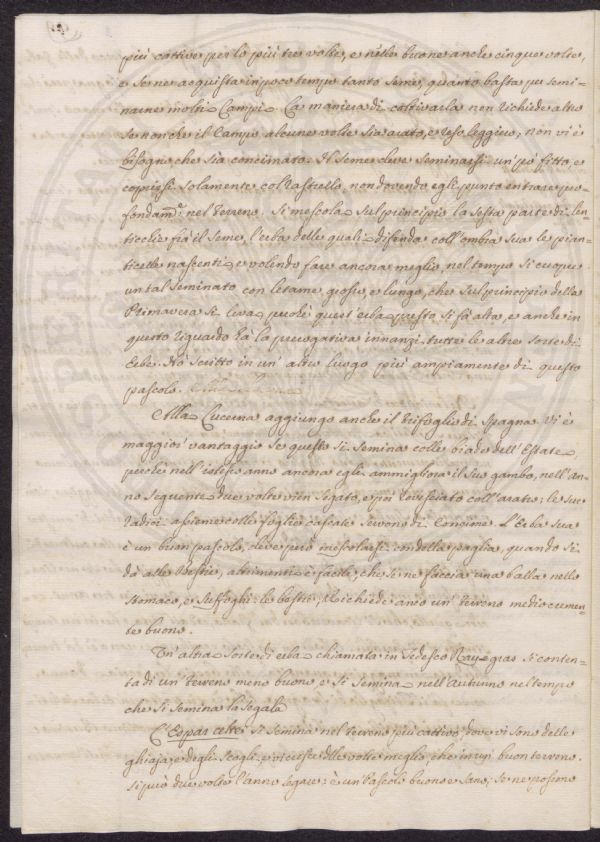 più cattive per lo più tre volte, e nelle buone anche cinque volte,
e se ne acquista in poco tempo tanto seme, quanto basta per semi-
narne molti Campi. La maniera di coltivarla non richiede altro
se non che il Campo alcune volte sia arato, e reso leggiero, non vi è
bisogno che sia concimato. Il seme deve seminarsi un pò fitto, e
coprirsi solamente col rastrello, non dovendo egli punto entrare pro-
fondam:te nel terreno. Si mescola sul principio la sesta parte di len-
ticchie frà il seme, l'erba delle quali difenda coll'ombra sua le pian-
ticelle nascenti, e volendo fare ancora meglio, nel tempo si cuopre
un tal seminato con letame grosso, e lungo, che sul principio della
Primavera si leva, perchè quest'erba presto si fà alta, e anche in
questo riguardo hà la prerogativa innanzi tutte le altre sorte di
Erbe. Hò scritto in un'altro luogo più ampiamente di questo
pascolo.
Alla Lucerna aggiungo anche il Trifoglio di Spagna. Vi è
maggior vantaggio se questo si semina colle biade dell'Estate,
perchè nell'istess'anno ancora egli ammigliora il suo gambo, nell'an-
no seguente due volte vien segato, e poi rovesciato coll'aratro; le sue
radici assieme colle foglie cascate servono di Concime. L'Erba sua
è un buon pascolo, deve però mescolarsi con della paglia, quando si
dà alle Bestie, altrimenti è facile, che si ne faccia una balla nello
stomaco, e suffoghi le bestie; Richiede anco un Terreno mediocremen-
te buono.
Un'altra sorte di erba chiamata in Tedesco Ray-gras si conten-
ta di un Terreno meno buono, e si semina nell'Autunno nel tempo
che si semina la Segala
L'Esparcette si semina nel terreno più cattivo, dove vi sono delle
ghiaja, e degli Scogli, e vi cresce alle volte meglio, che in un buon terreno.
si può due volte l'anno segare: è un Pascolo buono e sano; se ne possono